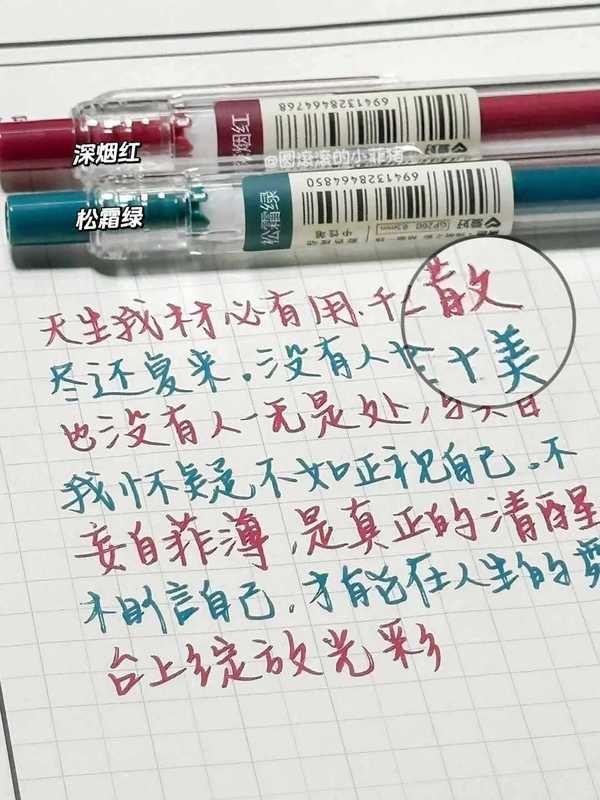 深烟红
深烟红
6941328464768
@圆滚滚的小菲猪
爱好
松霜绿
松霜绿
6941328464850
爱好
天生我材必有用,千 散
尽还复来。没有人 十 美
也没有人一无是处,与其自
我怀疑不如正视自己。不
妄自菲薄,是真正的清醒
相信自己,才能在人生的舞
台上绽放光彩